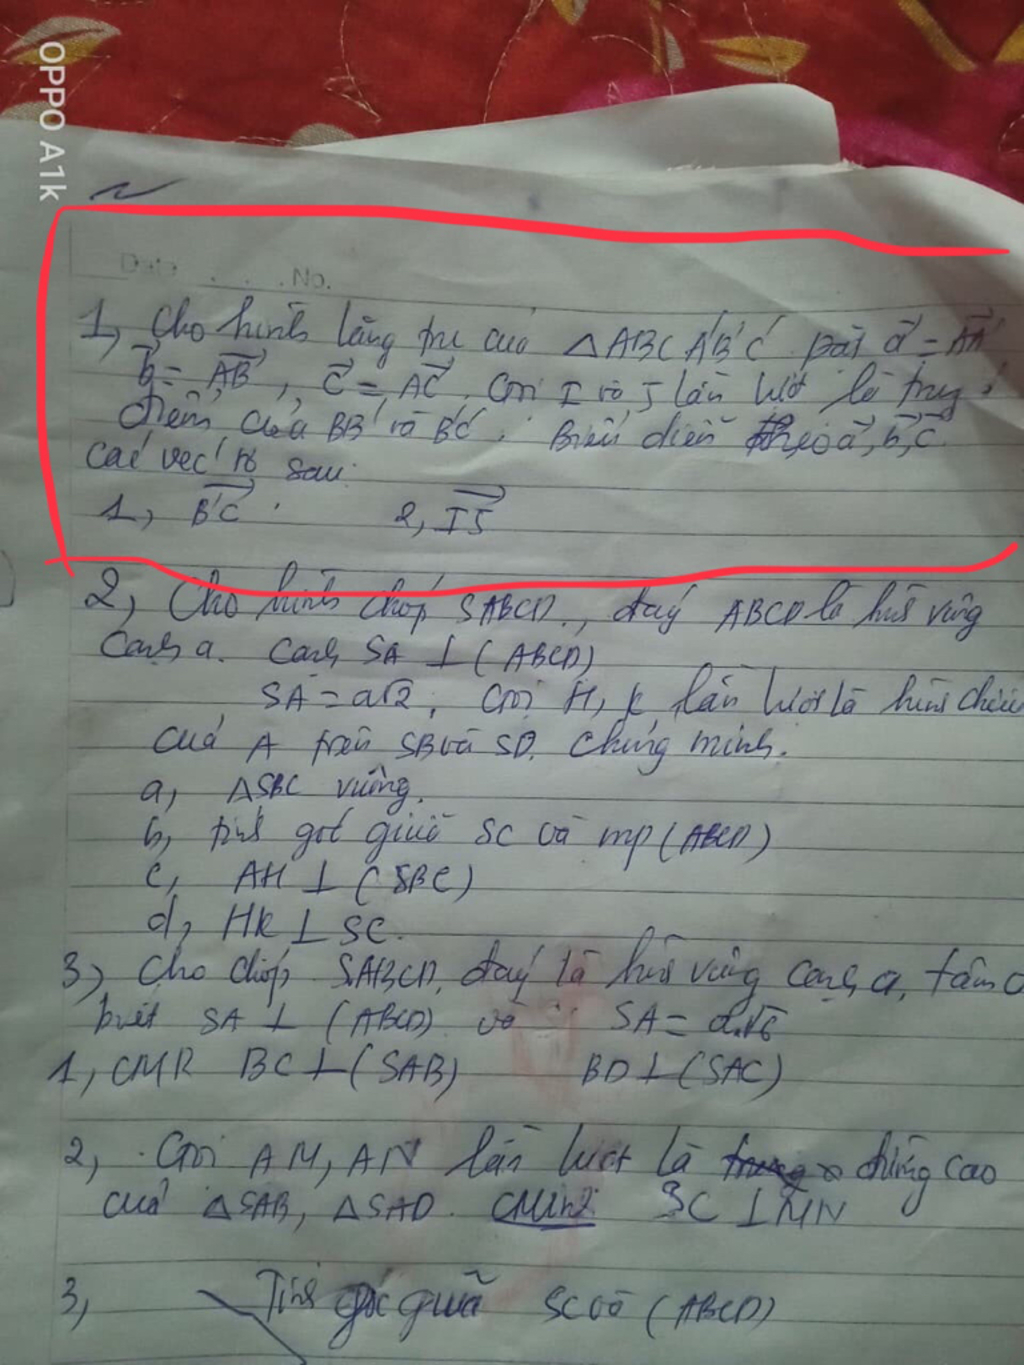 OPPO A1k
No.
1, Cho hình lăng trụ của △ABC A'B'C' Đặt a⃗ = AA'⃗
b⃗ = AB⃗, c⃗ = AC⃗. Gọi I và J lần lượt là trung
điểm của BB' và B'C'. Biểu diễn theo a⃗, b⃗, c⃗
các véc tơ sau:
1, B'C⃗ 2, IJ⃗
2, Cho hình chóp SABCD, đáy ABCD là hình vuông
cạnh a. Cạnh SA ⊥ (ABCD)
SA = a√2, Gọi H, K lần lượt là hình chiếu
của A trên SB và SD. Chứng minh.
a, △SBC vuông.
b, tính góc giữa SC và mp (ABCD)
c, AH ⊥ (SBC)
d, HK ⊥ SC.
3) Cho chóp SABCD, đáy là hình vuông cạnh a, tâm O
biết SA ⊥ (ABCD) và SA = a√6
1, CMR BC ⊥ (SAB) BD ⊥ (SAC)
2, Gọi AM, AN lần lượt là đường cao
của △SAB, △SAD. CMinh SC ⊥ MN
3, Tính góc giữa SC và (ABCD)